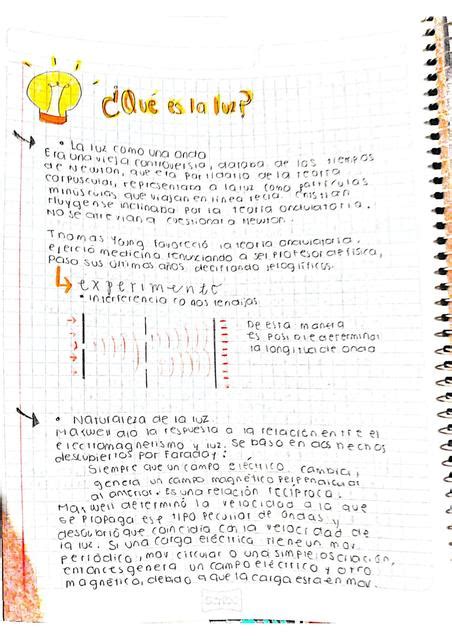 ¿Qué es la luz?
• La luz como una onda
Era una vieja controversia, databa de los tiempos
de Newton, que era partidario de la teoría
corpuscular, representaba a la luz como partículas
minúsculas que viajan en línea recta. Cristian
Huygense inclinaba por la teoría ondulatoria.
No se atrevian a cuestionar a Newton.
Thomas Young favoreció la teoría ondulatoria,
ejerció medicina renunciando a ser profesor de física,
paso sus últimos años decifrando jeroglíficos.
experimento
• Interferencia
De esta manera
es posible determinar
la longitud de onda
• Naturaleza de la luz.
Maxwell dio la respuesta a la relación entre el
electromagnetismo y luz. Se baso en dos hechos
descubiertos por Faraday:
Siempre que un campo eléctrico cambia,
genera un campo magnético perpendicular
al anterior. es una relación RECÍPROCA.
Maxwell determinó la velocidad a la que
se propaga ese tipo peculiar de ondas y
descubrió que concidia con la velocidad de
la luz. Si una carga eléctrica tiene un mov.
periódico, mov circular o una simple oscilación,
entonces genera un campo eléctrico y otro
magnético, debido a que la carga esta en mov.